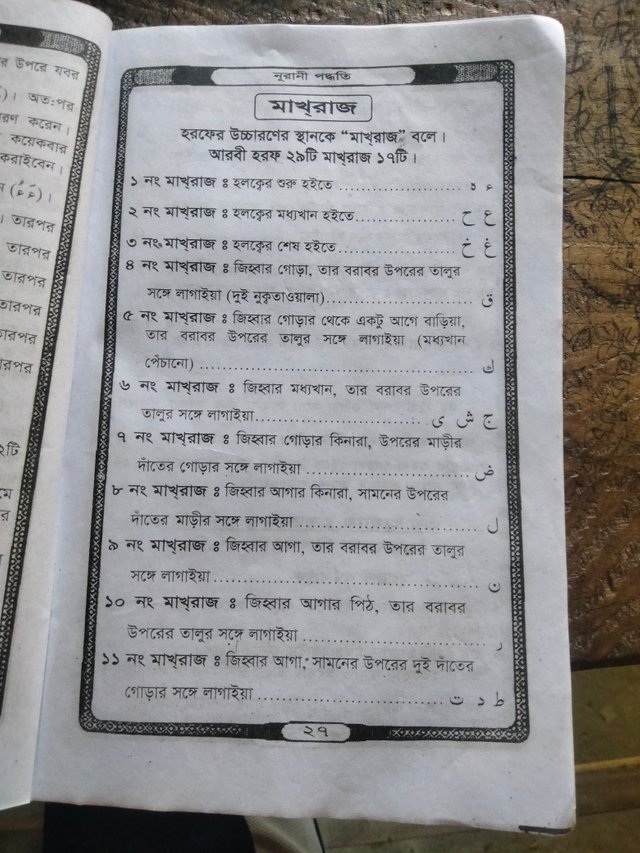 র উপরে যবর
)। অতঃপর
রণ করেন।
কয়েকবার
করাইবেন।
। তারপর
তারপর
তারপর
তারপর
তারপর
রপর
২টি
মে
র
নূরানী পদ্ধতি
মাখ্‌রাজ
হরফের উচ্চারণের স্থানকে “মাখ্‌রাজ” বলে।
আরবী হরফ ২৯টি মাখ্‌রাজ ১৭টি।
১ নং মাখ্‌রাজ ঃ হলক্বের শুরু হইতে ........................ ء ه
২ নং মাখ্‌রাজ ঃ হলক্বের মধ্যখান হইতে..................... ع ح
৩ নং মাখ্‌রাজ ঃ হলক্বের শেষ হইতে........................ غ خ
৪ নং মাখ্‌রাজ ঃ জিহ্বার গোড়া, তার বরাবর উপরের তালুর
সঙ্গে লাগাইয়া (দুই নুকৃতাওয়ালা)......................... ق
৫ নং মাখ্‌রাজ ঃ জিহ্বার গোড়ার থেকে একটু আগে বাড়িয়া,
তার বরাবর উপরের তালুর সঙ্গে লাগাইয়া (মধ্যখান
পেঁচানো) ............................................. ك
৬ নং মাখ্‌রাজ ঃ জিহ্বার মধ্যখান, তার বরাবর উপরের
তালুর সঙ্গে লাগাইয়া.............................. ج ش ى
৭ নং মাখ্‌রাজ ঃ জিহ্বার গোড়ার কিনারা, উপরের মাড়ীর
দাঁতের গোড়ার সঙ্গে লাগাইয়া ........................... ض
৮ নং মাখ্‌রাজ ঃ জিহ্বার আগার কিনারা, সামনের উপরের
দাঁতের মাড়ীর সঙ্গে লাগাইয়া ............................ ل
৯ নং মাখ্‌রাজ ঃ জিহ্বার আগা, তার বরাবর উপরের তালুর
সঙ্গে লাগাইয়া ........................................ ن
১০ নং মাখ্‌রাজ ঃ জিহ্বার আগার পিঠ, তার বরাবর
উপরের তালুর সঙ্গে লাগাইয়া ............................ ر
১১ নং মাখ্‌রাজ ঃ জিহ্বার আগা, সামনের উপরের দুই দাঁতের
গোড়ার সঙ্গে লাগাইয়া .............................. ط د ت
২৭